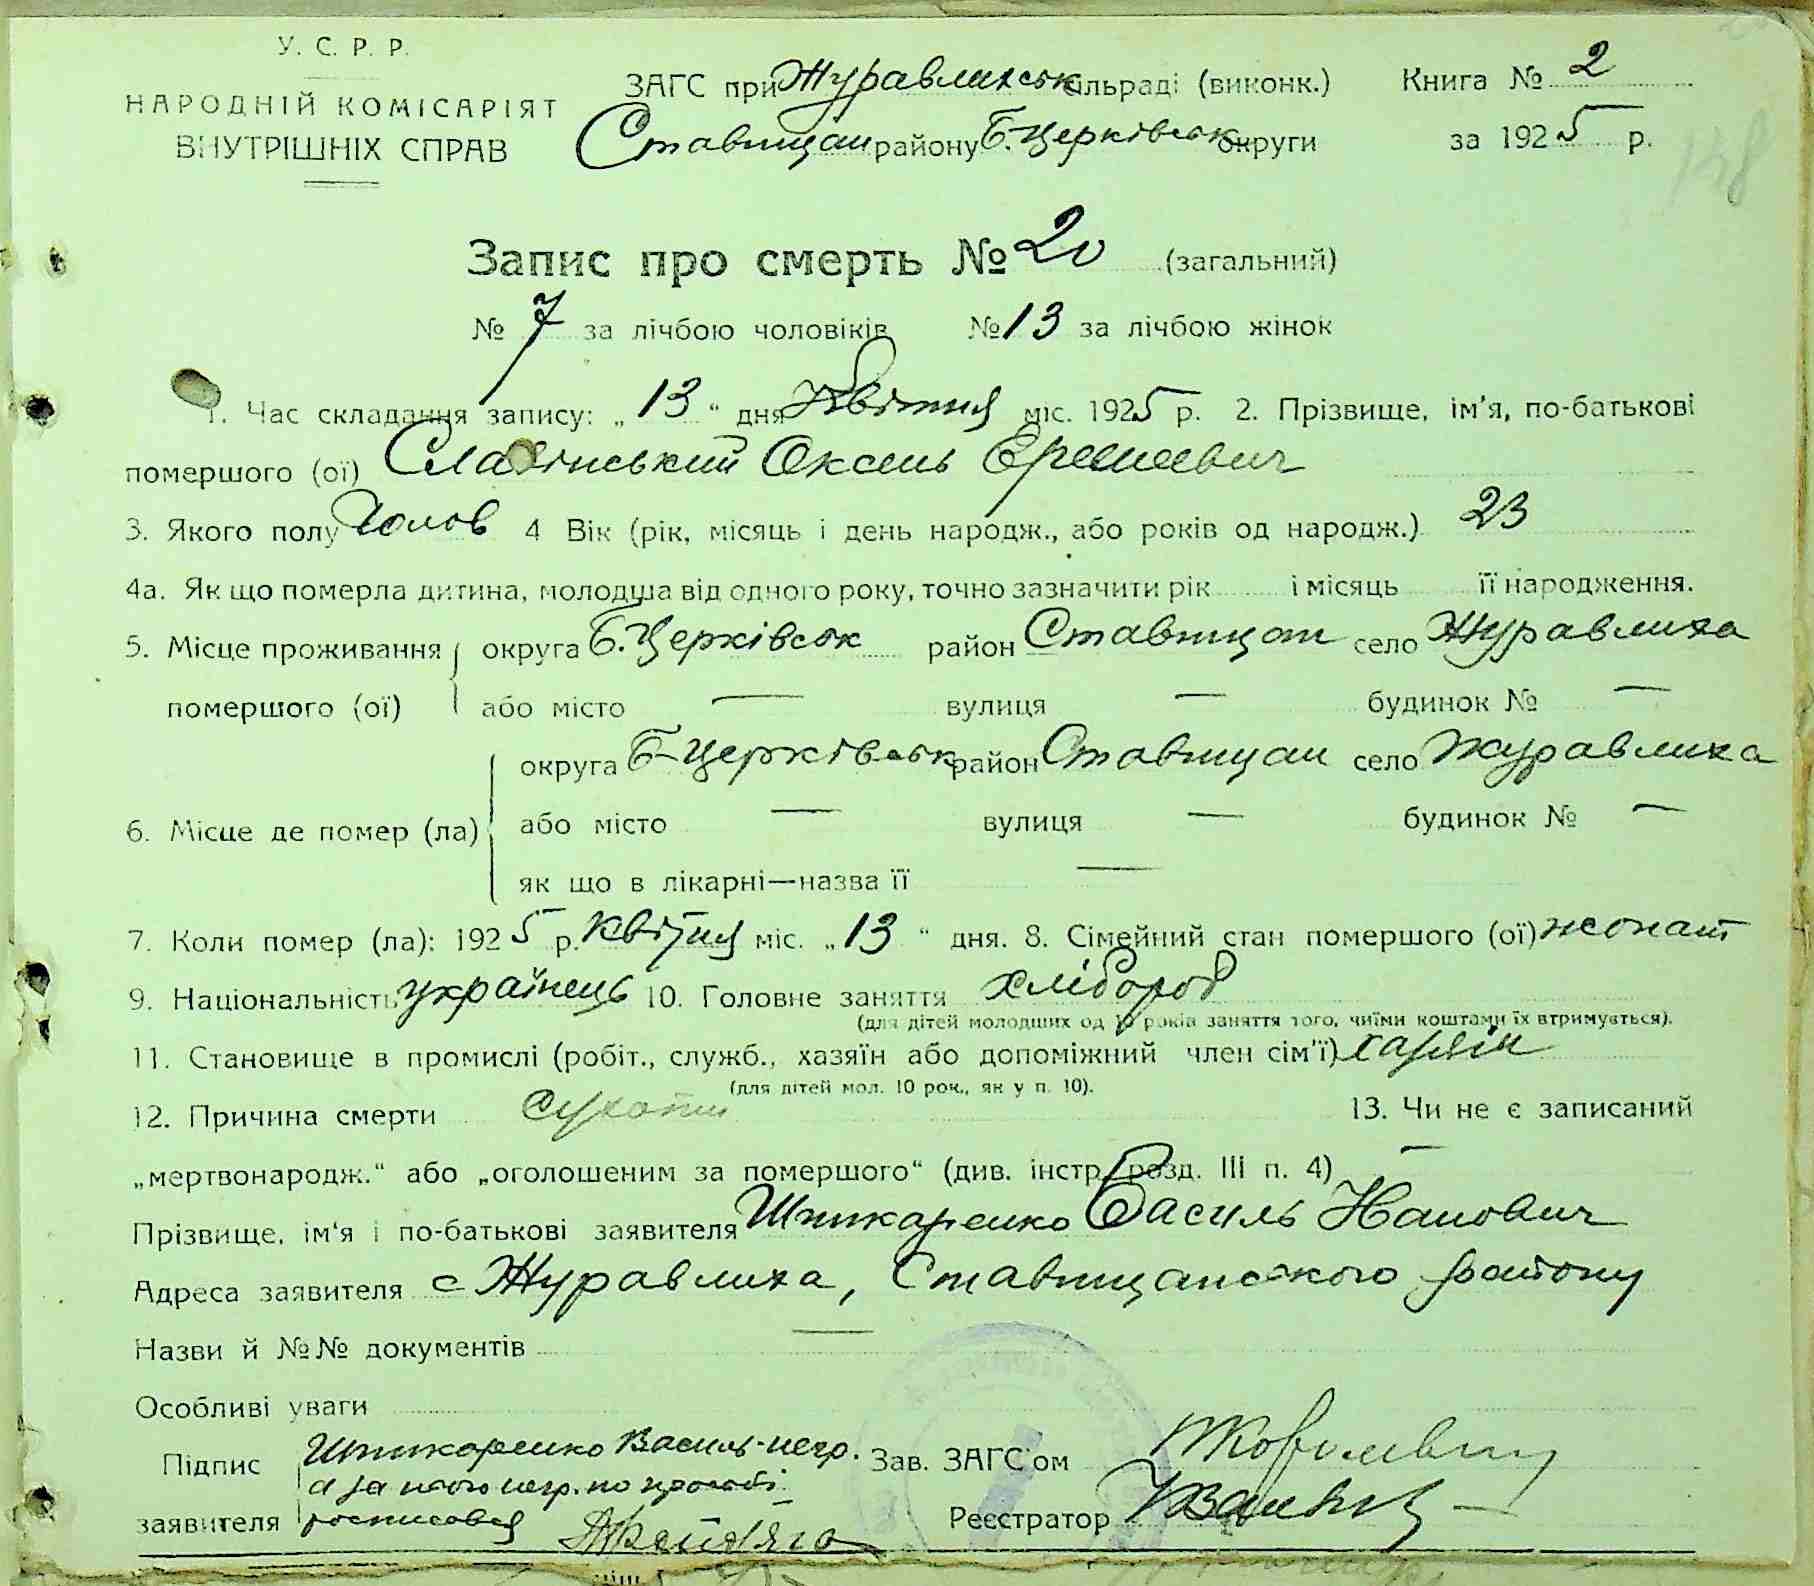 У. С. Р. Р.
НАРОДНІЙ КОМІСАРІЯТ
ВНУТРІШНІХ СПРАВ
ЗАГС при Журавлиськ сільраді (виконк.) Книга № 2
Ставищан району Б. Церківськ округи за 1925 р.
138
Запис про смерть № 20 (загальний)
№ 7 за лічбою чоловіків № 13 за лічбою жінок
1. Час складання запису: „13“ дня Квітня міс. 1925 р. 2. Прізвище, ім'я, по-батькові
помершого (ої) Славінський Оксень
3. Якого полу Чолов 4 Вік (рік, місяць і день народж., або років од народж.) 23
4а. Як що померла дитина, молодша від одного року, точно зазначити рік і місяць її народження.
5. Місце проживання округа Б. Церківськ район Ставищан село Журавлиха
помершого (ої) або місто — вулиця — будинок № —
округа Б-Церківськ район Ставищан село Журавлиха
6. Місце де помер (ла) або місто — вулиця — будинок № —
як що в лікарні—назва її —
7. Коли помер (ла): 1925 р. Квітня міс. „13“ дня. 8. Сімейний стан помершого (ої) жонат
9. Національність українець 10. Головне заняття хлібороб
(для дітей молодших од 10 років заняття того, чиїми коштами їх втримується).
11. Становище в промислі (робіт., служб., хазяїн або допоміжний член сім'ї) хазяїн
(для дітей мол. 10 рок., як у п. 10).
12. Причина смерти сухоти 13. Чи не є записаний
„мертвонародж.“ або „оголошеним за помершого“ (див. інстр. розд. III п. 4) —
Прізвище, ім'я і по-батькові заявителя Василь
Адреса заявителя с Журавлиха, Ставищанського району
Назви й №№ документів —
Особливі уваги
Підпис Василь-негр. Зав. ЗАГС'ом
а за нього негр. по прозьбі
заявителя росписовся Реєстратор